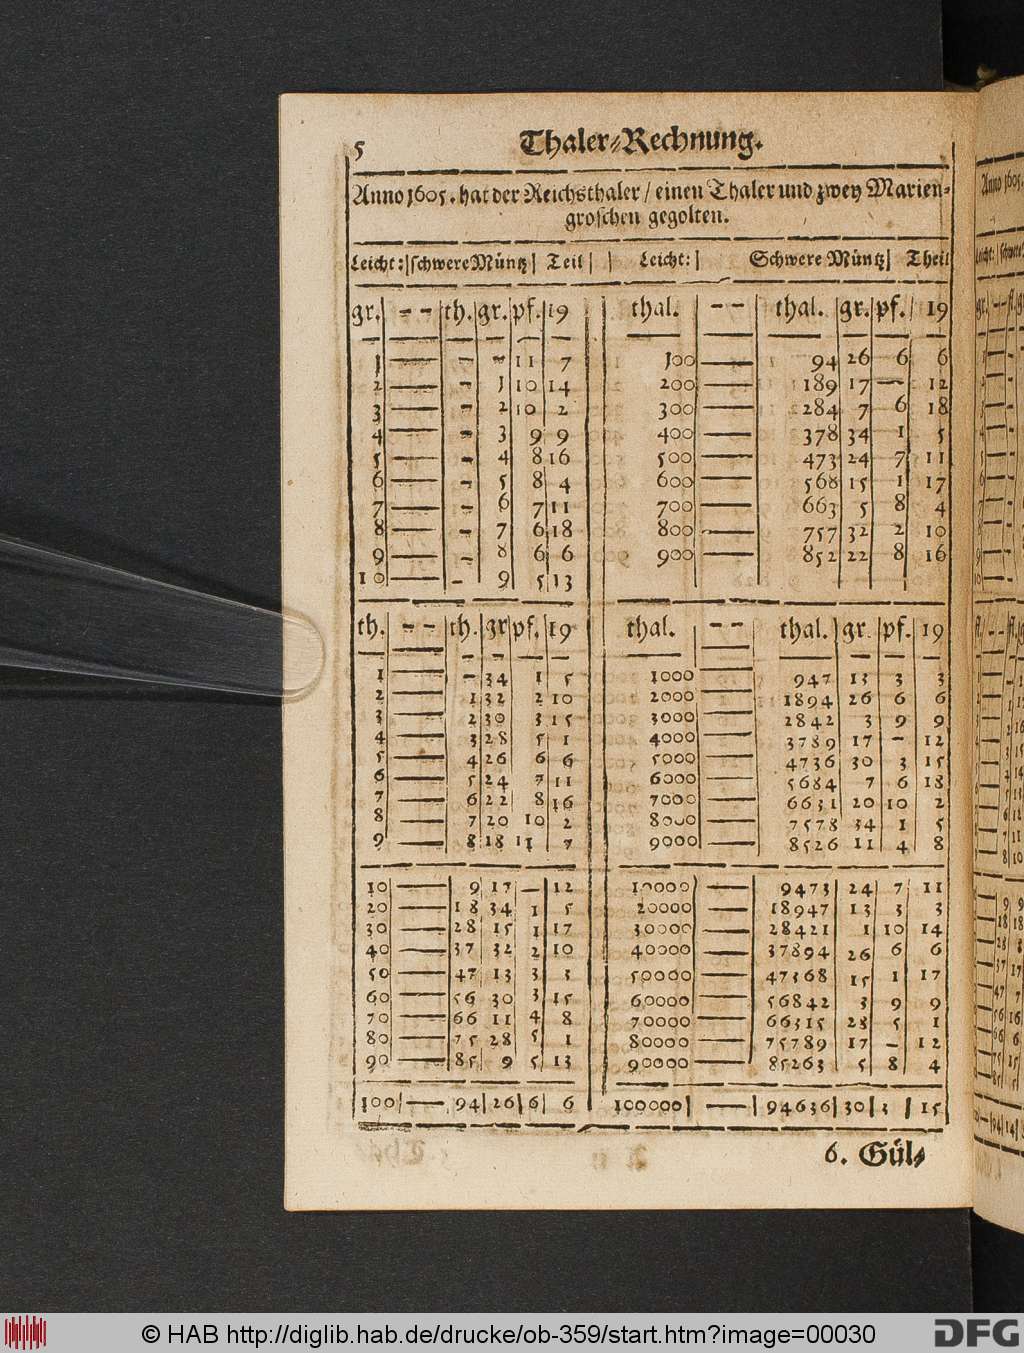 5 Thaler-Rechnung.
Anno 1605. hat der Reichsthaler / einen Thaler und zwey Marien-
groschen gegolten.
Leicht: | schwere Müntz | Teil | | Leicht: | Schwere Müntz | Theil
gr. | - - | th. | gr. | pf. | 19 | | thal. | - - | thal. | gr. | pf. | 19
1 — - | - | 11 | 7 | | 100 — 94 | 26 | 6 | 6
2 — - | 1 | 10 | 14 | | 200 — 189 | 17 | — | 12
3 — - | 2 | 10 | 2 | | 300 — 284 | 7 | 6 | 18
4 — - | 3 | 9 | 9 | | 400 — 378 | 34 | 1 | 5
5 — - | 4 | 8 | 16 | | 500 — 473 | 24 | 7 | 11
6 — - | 5 | 8 | 4 | | 600 — 568 | 15 | 1 | 17
7 — - | 6 | 7 | 11 | | 700 — 663 | 5 | 8 | 4
8 — - | 7 | 6 | 18 | | 800 — 757 | 32 | 2 | 10
9 — - | 8 | 6 | 6 | | 900 — 852 | 22 | 8 | 16
10 — - | 9 | 5 | 13
th. | - - | th. | gr | pf. | 19 | | thal. | - - | thal. | gr. | pf. | 19
1 — - | 34 | 1 | 5 | | 1000 — 947 | 13 | 3 | 3
2 — 1 | 32 | 2 | 10 | | 2000 — 1894 | 26 | 6 | 6
3 — 2 | 30 | 3 | 15 | | 3000 — 2842 | 3 | 9 | 9
4 — 3 | 28 | 5 | 1 | | 4000 — 3789 | 17 | - | 12
5 — 4 | 26 | 6 | 6 | | 5000 — 4736 | 30 | 3 | 15
6 — 5 | 24 | 7 | 11 | | 6000 — 5684 | 7 | 6 | 18
7 — 6 | 22 | 8 | 16 | | 7000 — 6631 | 20 | 10 | 2
8 — 7 | 20 | 10 | 2 | | 8000 — 7578 | 34 | 1 | 5
9 — 8 | 18 | 11 | 7 | | 9000 — 8526 | 11 | 4 | 8
10 — 9 | 17 | — | 12 | | 10000 — 9473 | 24 | 7 | 11
20 — 18 | 34 | 1 | 5 | | 20000 — 18947 | 13 | 3 | 3
30 — 28 | 15 | 1 | 17 | | 30000 — 28421 | 1 | 10 | 14
40 — 37 | 32 | 2 | 10 | | 40000 — 37894 | 26 | 6 | 6
50 — 47 | 13 | 3 | 3 | | 50000 — 47368 | 15 | 1 | 17
60 — 56 | 30 | 3 | 15 | | 60000 — 56842 | 3 | 9 | 9
70 — 66 | 11 | 4 | 8 | | 70000 — 66315 | 28 | 5 | 1
80 — 75 | 28 | 5 | 1 | | 80000 — 75789 | 17 | - | 12
90 — 85 | 9 | 5 | 13 | | 90000 — 85263 | 5 | 8 | 4
100 | — | 94 | 26 | 6 | 6 | | 100000 | — | 94636 | 30 | 3 | 15
6. Gül-
© HAB http://diglib.hab.de/drucke/ob-359/start.htm?image=00030
DFG